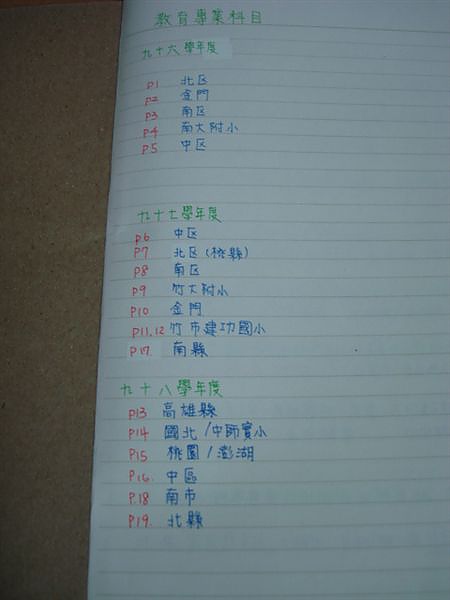 教育專業科目
九十六學年度
P1 北区
P2 金門
P3 南区
P4 南大附小
P5 中区
九十七學年度
P6 中区
P7 北区(桃縣)
P8 南区
P9 竹大附小
P10 金門
P11.12 竹市建功國小
P17. 南縣
九十八學年度
P13 高雄縣
P14 國北/中師實小
P15 桃園/澎湖
P16. 中區
P.18 南市
P19. 北縣